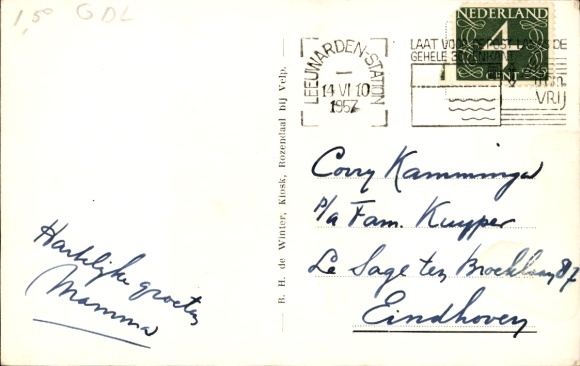 1,50 GDL
LEEUWARDEN-STATION
14 VI 10
1957
NEDERLAND
4
CENT
LAAT VOOR DE POST DE
GEHELE
VRIJ
B. H. de Winter, Kiosk, Rozendaal bij Velp.
Corry Kamminga
p/a Fam. Kuyper
Le Sage ten Broeklaan 87
Eindhoven
Hartelijke groeten
Mamma